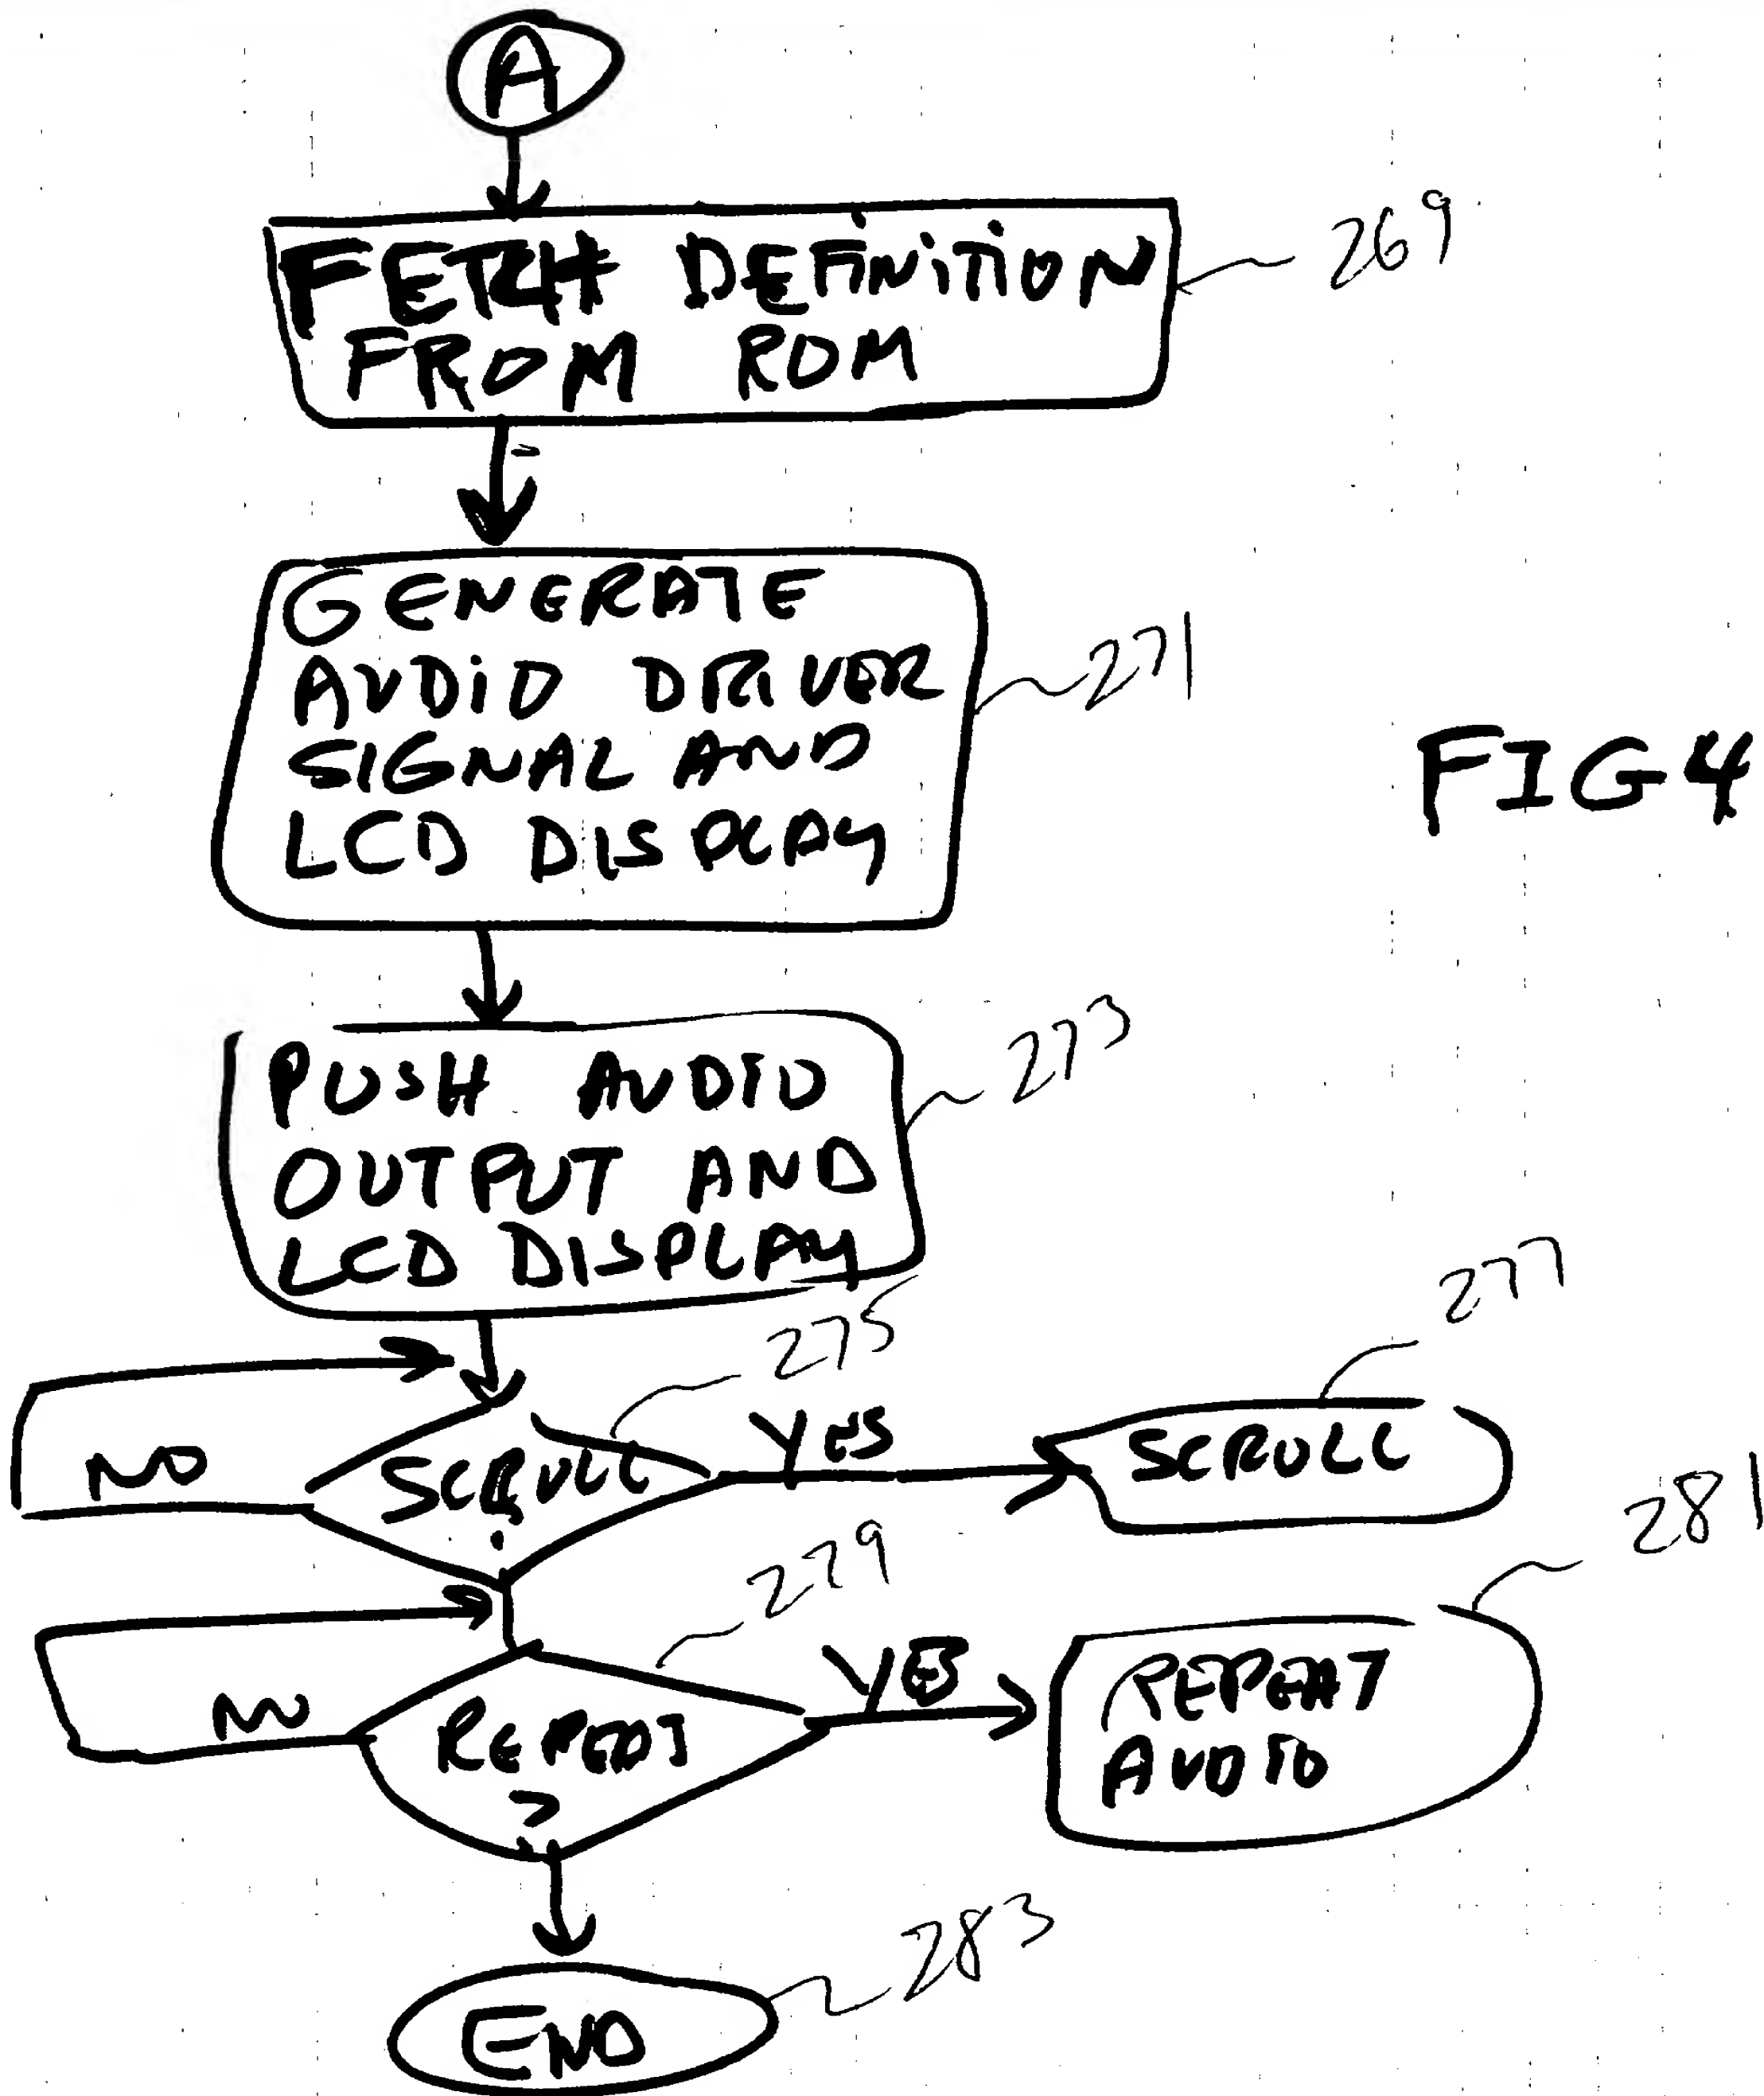 A
FETCH DEFINITION
FROM ROM
269
GENERATE
AUDIO DRIVER
SIGNAL AND
LCD DISPLAY
271
FIG 4
PUSH AUDIO
OUTPUT AND
LCD DISPLAY
273
275
277
NO
SCROLL
YES
SCROLL
279
281
NO
REPEAT
?
YES
REPEAT
AUDIO
END
283